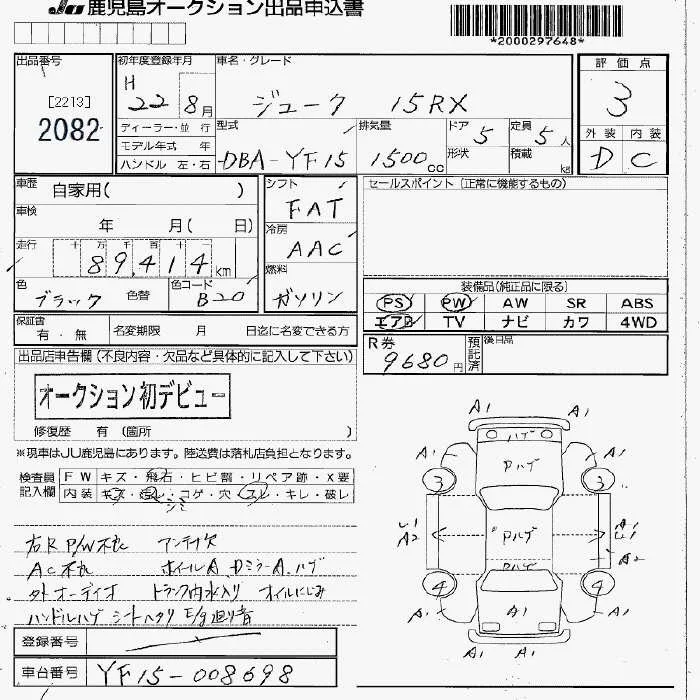 JU 鹿児島オークション出品申込書
*2000297648*
出品番号
[2213]
2082
初年度登録年月
H 22 8月
ディーラー・並 行
モデル年式 年
ハンドル 左・右
車名・グレード
ジューク 15RX
型式
DBA-YF15
排気量
1500cc
ドア 5
形状
定員 5人
積載 kg
評価点
3
外装 内装
D C
車歴 自家用( )
車検 年 月( 日)
走行 十 万 千 百 十
89,414 km
色 ブラック 色替
色コード B20
シフト
FAT
冷房
AAC
燃料
ガソリン
セールスポイント (正常に機能するもの)
装備品(純正品に限る)
PS PW AW SR ABS
エアB TV ナビ カワ 4WD
保証書 有・無
名変期限 月 日迄に名変できる方
R券 9680円
預託済
後日品
出品店申告欄 (不良内容・欠品など具体的に記入して下さい)
オークション初デビュー
修復歴 有 (箇所 )
※現車はJU鹿児島にあります。陸送費は落札店負担となります。
検査員記入欄
FW キズ・飛石・ヒビ割・リペア跡・X要
内装 キズ・汚レ・コゲ・穴・スレ・キレ・破レ
シミ
右R P/W不良 アンテナ欠
AC不良 ホイールA、DミラーA、ハゲ
社外オーディオ トランク内水入り オイルにじみ
ハンドルハゲ シートヘタリ E/g廻り音
登録番号
車台番号 YF15-008698
A1 A1
ハゲ
A1 Pハゲ A1
3 3
U1 A2 Pハゲ A1 U1 A2
Pハゲ
4 4
A1 A1 A1
A1 A1